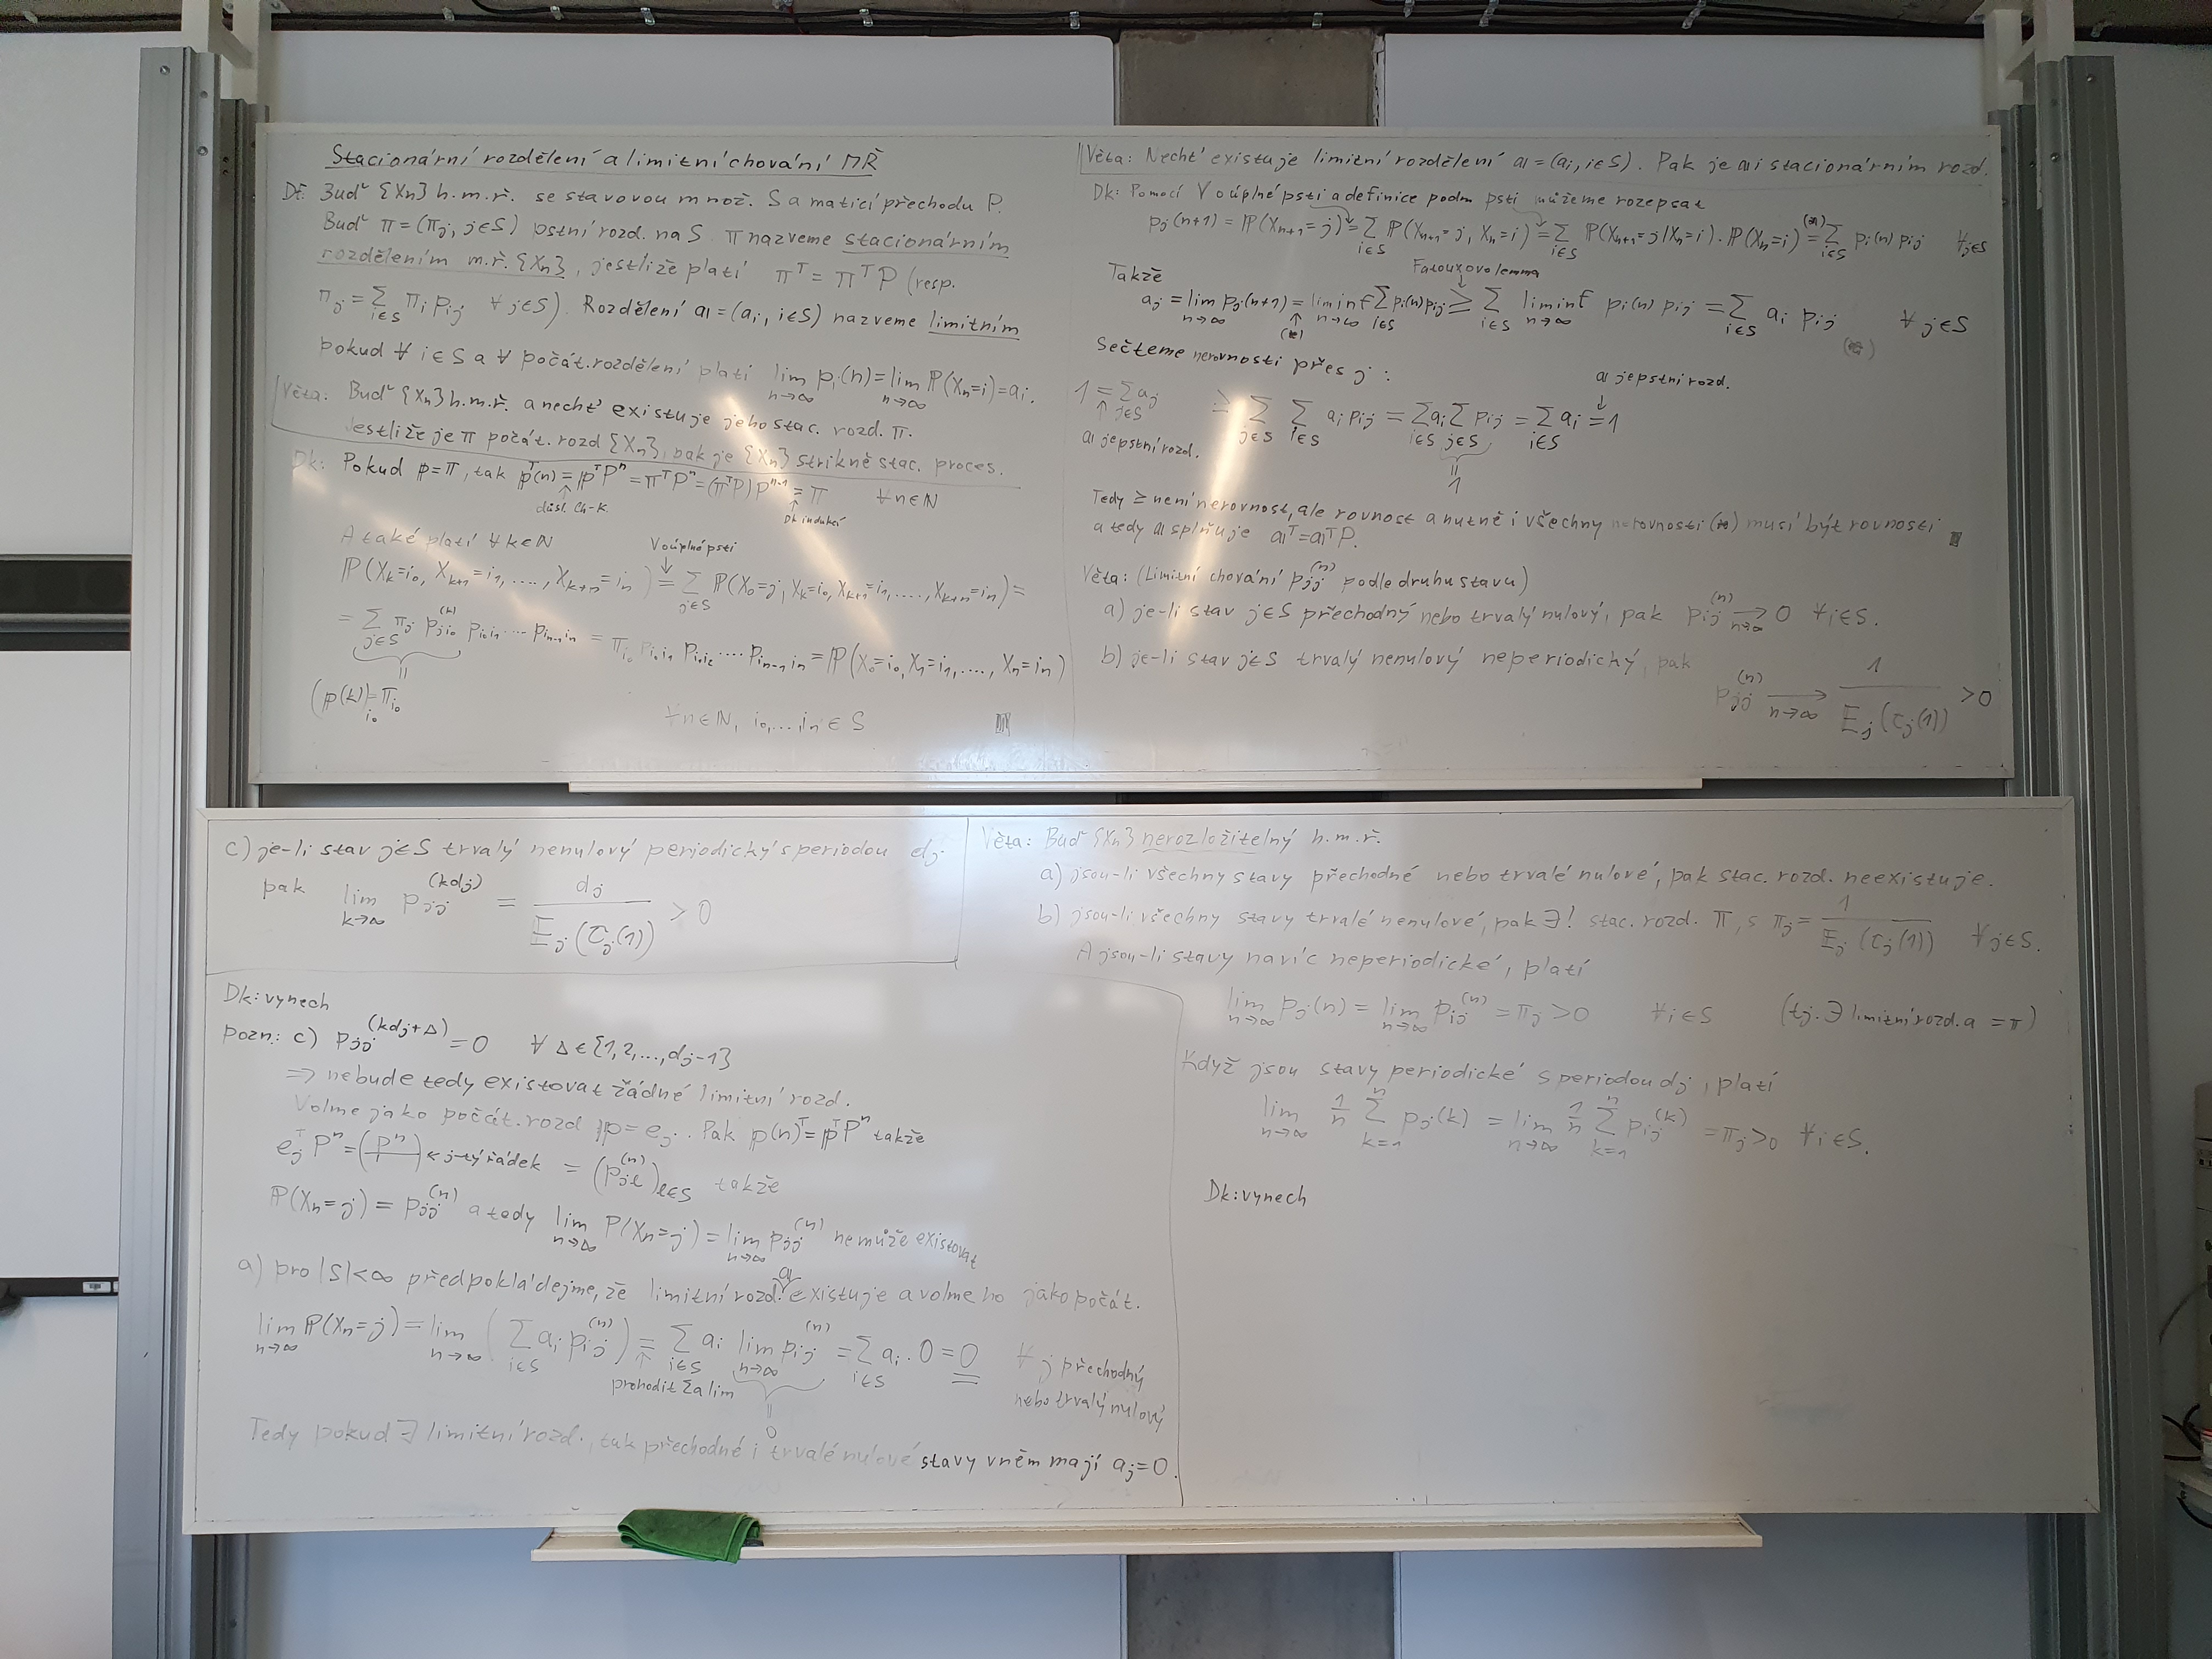 Stacionární rozdělení a limitní chování MŘ
Df: Buď {Xn} h.m.ř. se stavovou množ. S a maticí přechodu P.
Buď π=(πj, j∈S) pstní rozd. na S. π nazveme stacionárním
rozdělením m.ř. {Xn}, jestliže platí π^T = π^T P (resp.
πj = ∑_{i∈S} πi pij ∀ j∈S). Rozdělení a=(ai, i∈S) nazveme limitním
pokud ∀ i∈S a ∀ počát. rozdělení platí lim_{n→∞} pi(n) = lim_{n→∞} P(Xn=i)=ai.
Věta: Buď {Xn} h.m.ř. a nechť existuje jeho stac. rozd. π.
Jestliže je π počát. rozd {Xn}, pak je {Xn} striktně stac. proces.
Dk: Pokud p=π, tak p^T(n) = p^T P^n = π^T P^n = (π^T P) P^{n-1} = π ∀n∈N
důsl. Ch-K. Dk indukcí
A také platí ∀k∈N
V o úplné psti
P(Xk=i0, Xk+1=i1, ...., Xk+n=in) = ∑_{j∈S} P(X0=j, Xk=i0, Xk+1=i1, ...., Xk+n=in) =
= ∑_{j∈S} πj p_{ji0}^{(k)} p_{i0i1} .... p_{in-1in} = π_{i0} p_{i0i1} p_{i1i2} .... p_{in-1in} = P(X0=i0, X1=i1, ...., Xn=in)
=
(p(k))_{i0} = π_{i0}
∀n∈N, i0,...,in∈S
Věta: Nechť existuje limitní rozdělení a=(ai, i∈S). Pak je a i stacionárním rozd.
Dk: Pomocí V o úplné psti a definice podm psti můžeme rozepsat
pj(n+1) = P(Xn+1=j) = ∑_{i∈S} P(Xn+1=j, Xn=i) = ∑_{i∈S} P(Xn+1=j|Xn=i) . P(Xn=i) =^{(*)} ∑_{i∈S} pi(n) pij ∀j∈S
Takže Fatouxovo lemma
aj = lim_{n→∞} pj(n+1) = liminf_{n→∞} ∑_{i∈S} pi(n) pij ≥ ∑_{i∈S} liminf_{n→∞} pi(n) pij = ∑_{i∈S} ai pij ∀ j∈S
(*)
Sečteme nerovnosti přes j:
a je pstní rozd.
1 = ∑_{j∈S} aj ≥ ∑_{j∈S} ∑_{i∈S} ai pij = ∑_{i∈S} ai ∑_{j∈S} pij = ∑_{i∈S} ai = 1
a je pstní rozd.
=
1
Tedy ≥ není nerovnost, ale rovnost a nutně i všechny nerovnosti (*) musí být rovnosti
a tedy a splňuje a^T=a^T P.
Věta: (Limitní chování pjj^{(n)} podle druhu stavu)
a) je-li stav j∈S přechodný nebo trvalý nulový, pak pij^{(n)} →_{n→∞} 0 ∀i∈S.
b) je-li stav j∈S trvalý nenulový neperiodický, pak
pjj^{(n)} →_{n→∞} 1/Ej(τj(1)) > 0
c) je-li stav j∈S trvalý nenulový periodický s periodou dj
pak lim_{k→∞} pjj^{(kdj)} = dj/Ej(τj(1)) > 0
Dk: vynech
pozn.: c) pjj^{(kdj+Δ)} = 0 ∀ Δ∈{1,2,...,dj-1}
=> nebude tedy existovat žádné limitní rozd.
Volme jako počát. rozd p=ej. Pak p(n)^T = p^T P^n takže
ej^T P^n = (P^n) ← j-tý řádek = (pjl^{(n)})_{l∈S} takže
P(Xn=j) = pjj^{(n)} a tedy lim_{n→∞} P(Xn=j) = lim_{n→∞} pjj^{(n)} nemůže existovat
a) pro |S|<∞ předpokládejme, že limitní rozd. a existuje a volme ho jako počát.
lim_{n→∞} P(Xn=j) = lim_{n→∞} (∑_{i∈S} ai pij^{(n)}) = ∑_{i∈S} ai lim_{n→∞} pij^{(n)} = ∑_{i∈S} ai . 0 = 0 ∀ j přechodný
prohodit ∑ a lim
nebo trvalý nulový
=
0
Tedy pokud ∃ limitní rozd., tak přechodné i trvalé nulové stavy v něm mají aj=0.
Věta: Buď {Xn} nerozložitelný h.m.ř.
a) jsou-li všechny stavy přechodné nebo trvalé nulové, pak stac. rozd. neexistuje.
b) jsou-li všechny stavy trvalé nenulové, pak ∃! stac. rozd. π, s πj = 1/Ej(τj(1)) ∀j∈S.
A jsou-li stavy navíc neperiodické, platí
lim_{n→∞} pj(n) = lim_{n→∞} pij^{(n)} = πj > 0 ∀i∈S (tj. ∃ limitní rozd. a = π)
Když jsou stavy periodické s periodou dj, platí
lim_{n→∞} 1/n ∑_{k=1}^{n} pj(k) = lim_{n→∞} 1/n ∑_{k=1}^{n} pij^{(k)} = πj > 0 ∀i∈S.
Dk: vynech